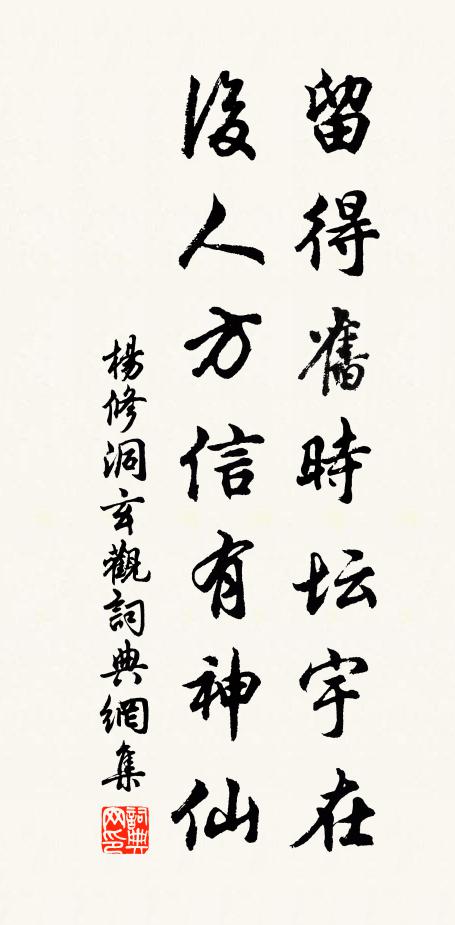 留得舊時坛宇在
後人方信有神仙
楊修洞玄觀詞典網集
詞典网印